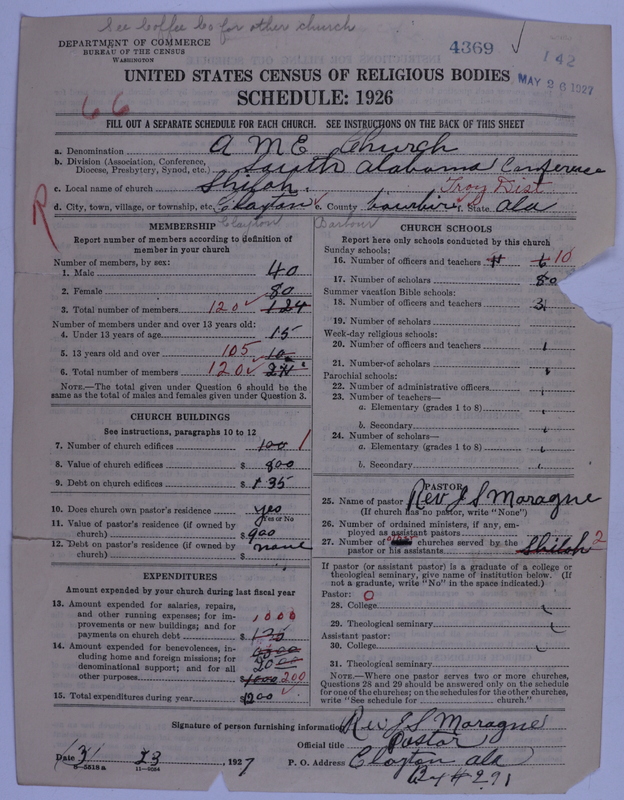 See Coffee Co for other church
DEPARTMENT OF COMMERCE
BUREAU OF THE CENSUS
WASHINGTON
4369
142
MAY 26 1927
UNITED STATES CENSUS OF RELIGIOUS BODIES
SCHEDULE: 1926
66
FILL OUT A SEPARATE SCHEDULE FOR EACH CHURCH. SEE INSTRUCTIONS ON THE BACK OF THIS SHEET
a. Denomination A M E Church
b. Division (Association, Conference, Diocese, Presbytery, Synod, etc.) South Alabama Conference
c. Local name of church Shiloh Troy Dist
R
d. City, town, village, or township, etc. Clayton e. County f. State Ala
Clayton Barbour
MEMBERSHIP
Report number of members according to definition of
member in your church
Number of members, by sex:
1. Male 40
2. Female 80
3. Total number of members 120 124
Number of members under and over 13 years old:
4. Under 13 years of age 15
5. 13 years old and over 105
6. Total number of members 120
NOTE.—The total given under Question 6 should be the
same as the total of males and females given under Question 3.
CHURCH BUILDINGS
See instructions, paragraphs 10 to 12
7. Number of church edifices 100 1
8. Value of church edifices $ 800
9. Debt on church edifices $ 35
10. Does church own pastor's residence yes
Yes or No
11. Value of pastor's residence (if owned by
church) $ 900
12. Debt on pastor's residence (if owned by
church) $ none
EXPENDITURES
Amount expended by your church during last fiscal year
13. Amount expended for salaries, repairs,
and other running expenses; for im-
provements or new buildings; and for
payments on church debt $ 1000
14. Amount expended for benevolences, in-
cluding home and foreign missions; for
denominational support; and for all
other purposes $ 1000 200
15. Total expenditures during year $ 1200
CHURCH SCHOOLS
Report here only schools conducted by this church
Sunday schools:
16. Number of officers and teachers 6 10
17. Number of scholars 80
Summer vacation Bible schools:
18. Number of officers and teachers 3
19. Number of scholars
Week-day religious schools:
20. Number of officers and teachers
21. Number of scholars
Parochial schools:
22. Number of administrative officers
23. Number of teachers—
a. Elementary (grades 1 to 8)
b. Secondary
24. Number of scholars—
a. Elementary (grades 1 to 8)
b. Secondary
PASTOR
25. Name of pastor Rev J S Maragne
(If church has no pastor, write "None")
26. Number of ordained ministers, if any, em-
ployed as assistant pastors
27. Number of churches served by the
pastor or his assistants Shiloh 2
If pastor (or assistant pastor) is a graduate of a college or
theological seminary, give name of institution below. (If
not a graduate, write "No" in the space indicated.)
Pastor: O
28. College
29. Theological seminary
Assistant pastor:
30. College
31. Theological seminary
NOTE.—Where one pastor serves two or more churches,
Questions 28 and 29 should be answered only on the schedule
for one of the churches; on the schedules for the other churches,
write "See schedule for church."
Signature of person furnishing information Rev J S Maragne
Official title Pastor
Date 23, 1927 P. O. Address Clayton Ala
8-5518 a 11-9054